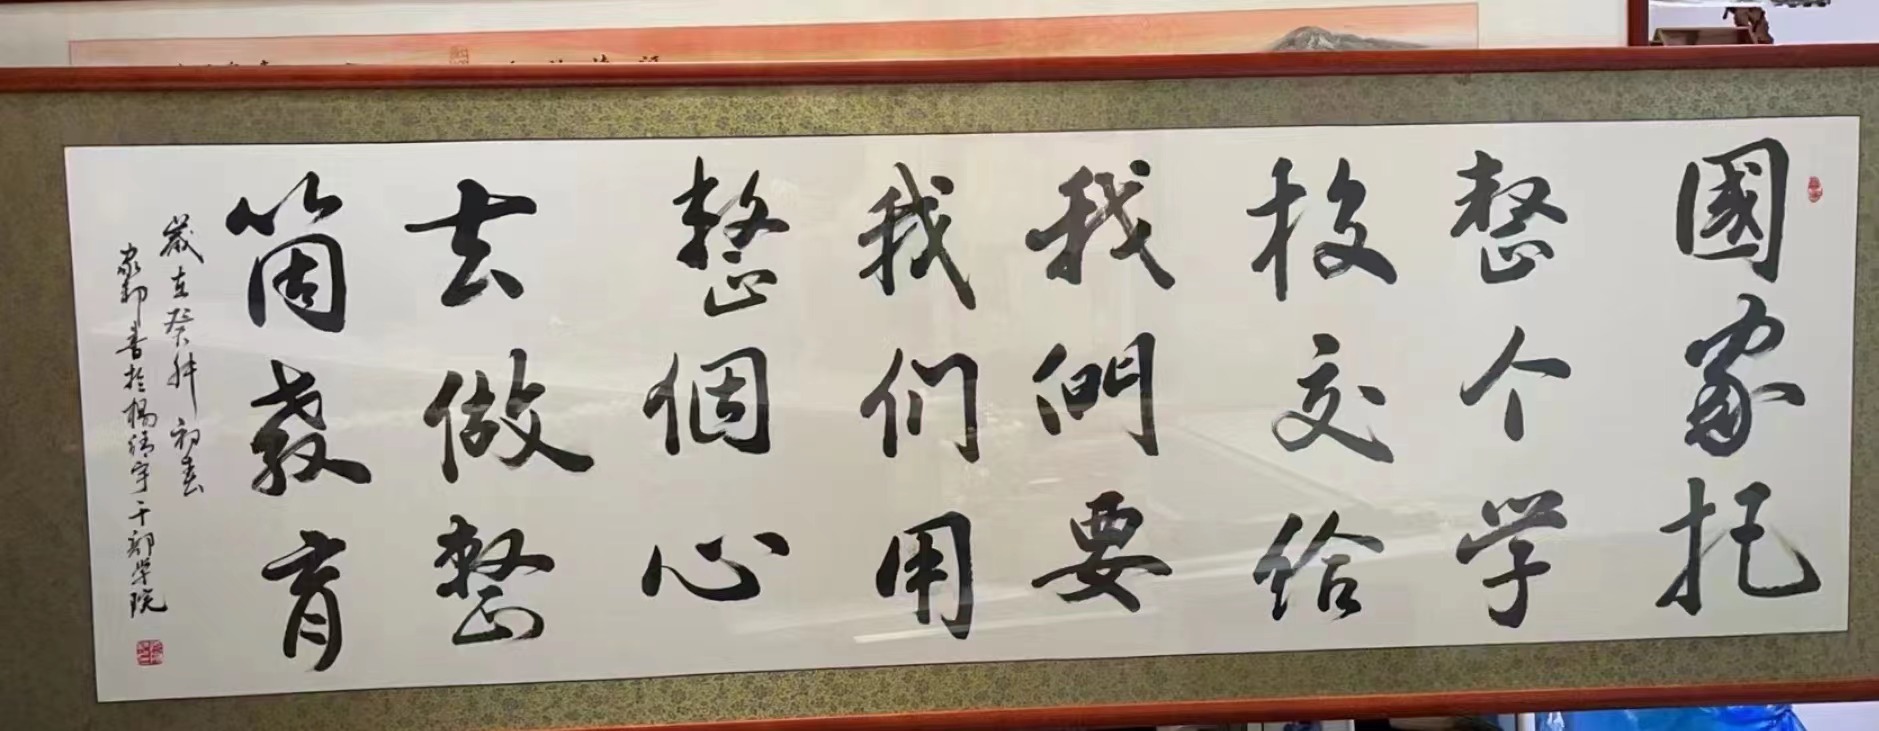 國家托
整个学
校交给
我們要
我们用
整個心
去做整
箇教育
歲在癸卯初春
家勤書於楊靖宇干部学院